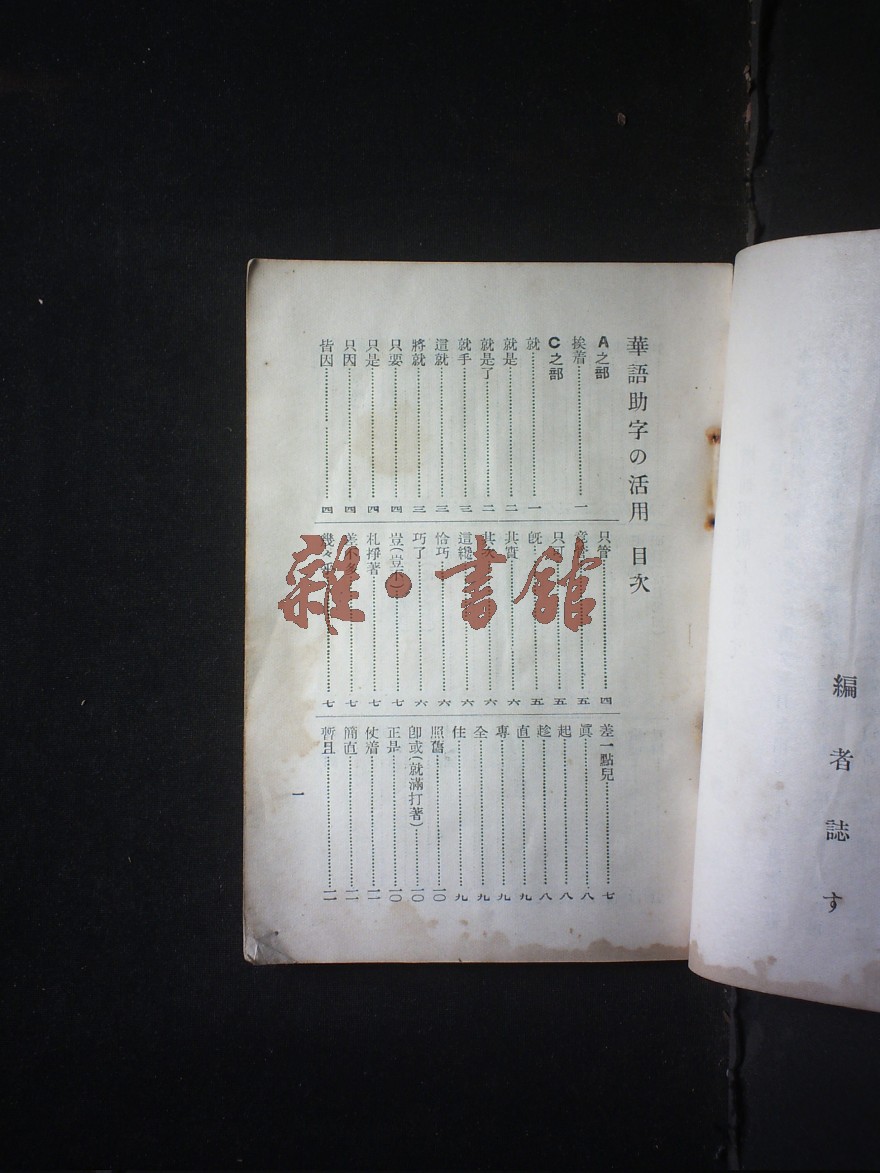 編者誌す
華語助字の活用 目次
A之部
挨着 一
C之部
就 一
就是 二
就是了 二
就手 三
這就 三
將就 三
只要 四
只是 四
只因 四
皆因 四
只管 四
五
只可 五
既 五
其實 六
其次 六
這纔 六
恰巧 六
巧了 六
豈(豈不) 七
札掙著 七
差不多 七
幾乎 七
差一點兒 七
眞 八
起 八
趁 八
直 九
專 九
全 九
住 九
照舊 一〇
卽或(就滿打著) 一〇
正是 一〇
仗着 一一
簡直 一一
暫且 一一
一
雜·書館